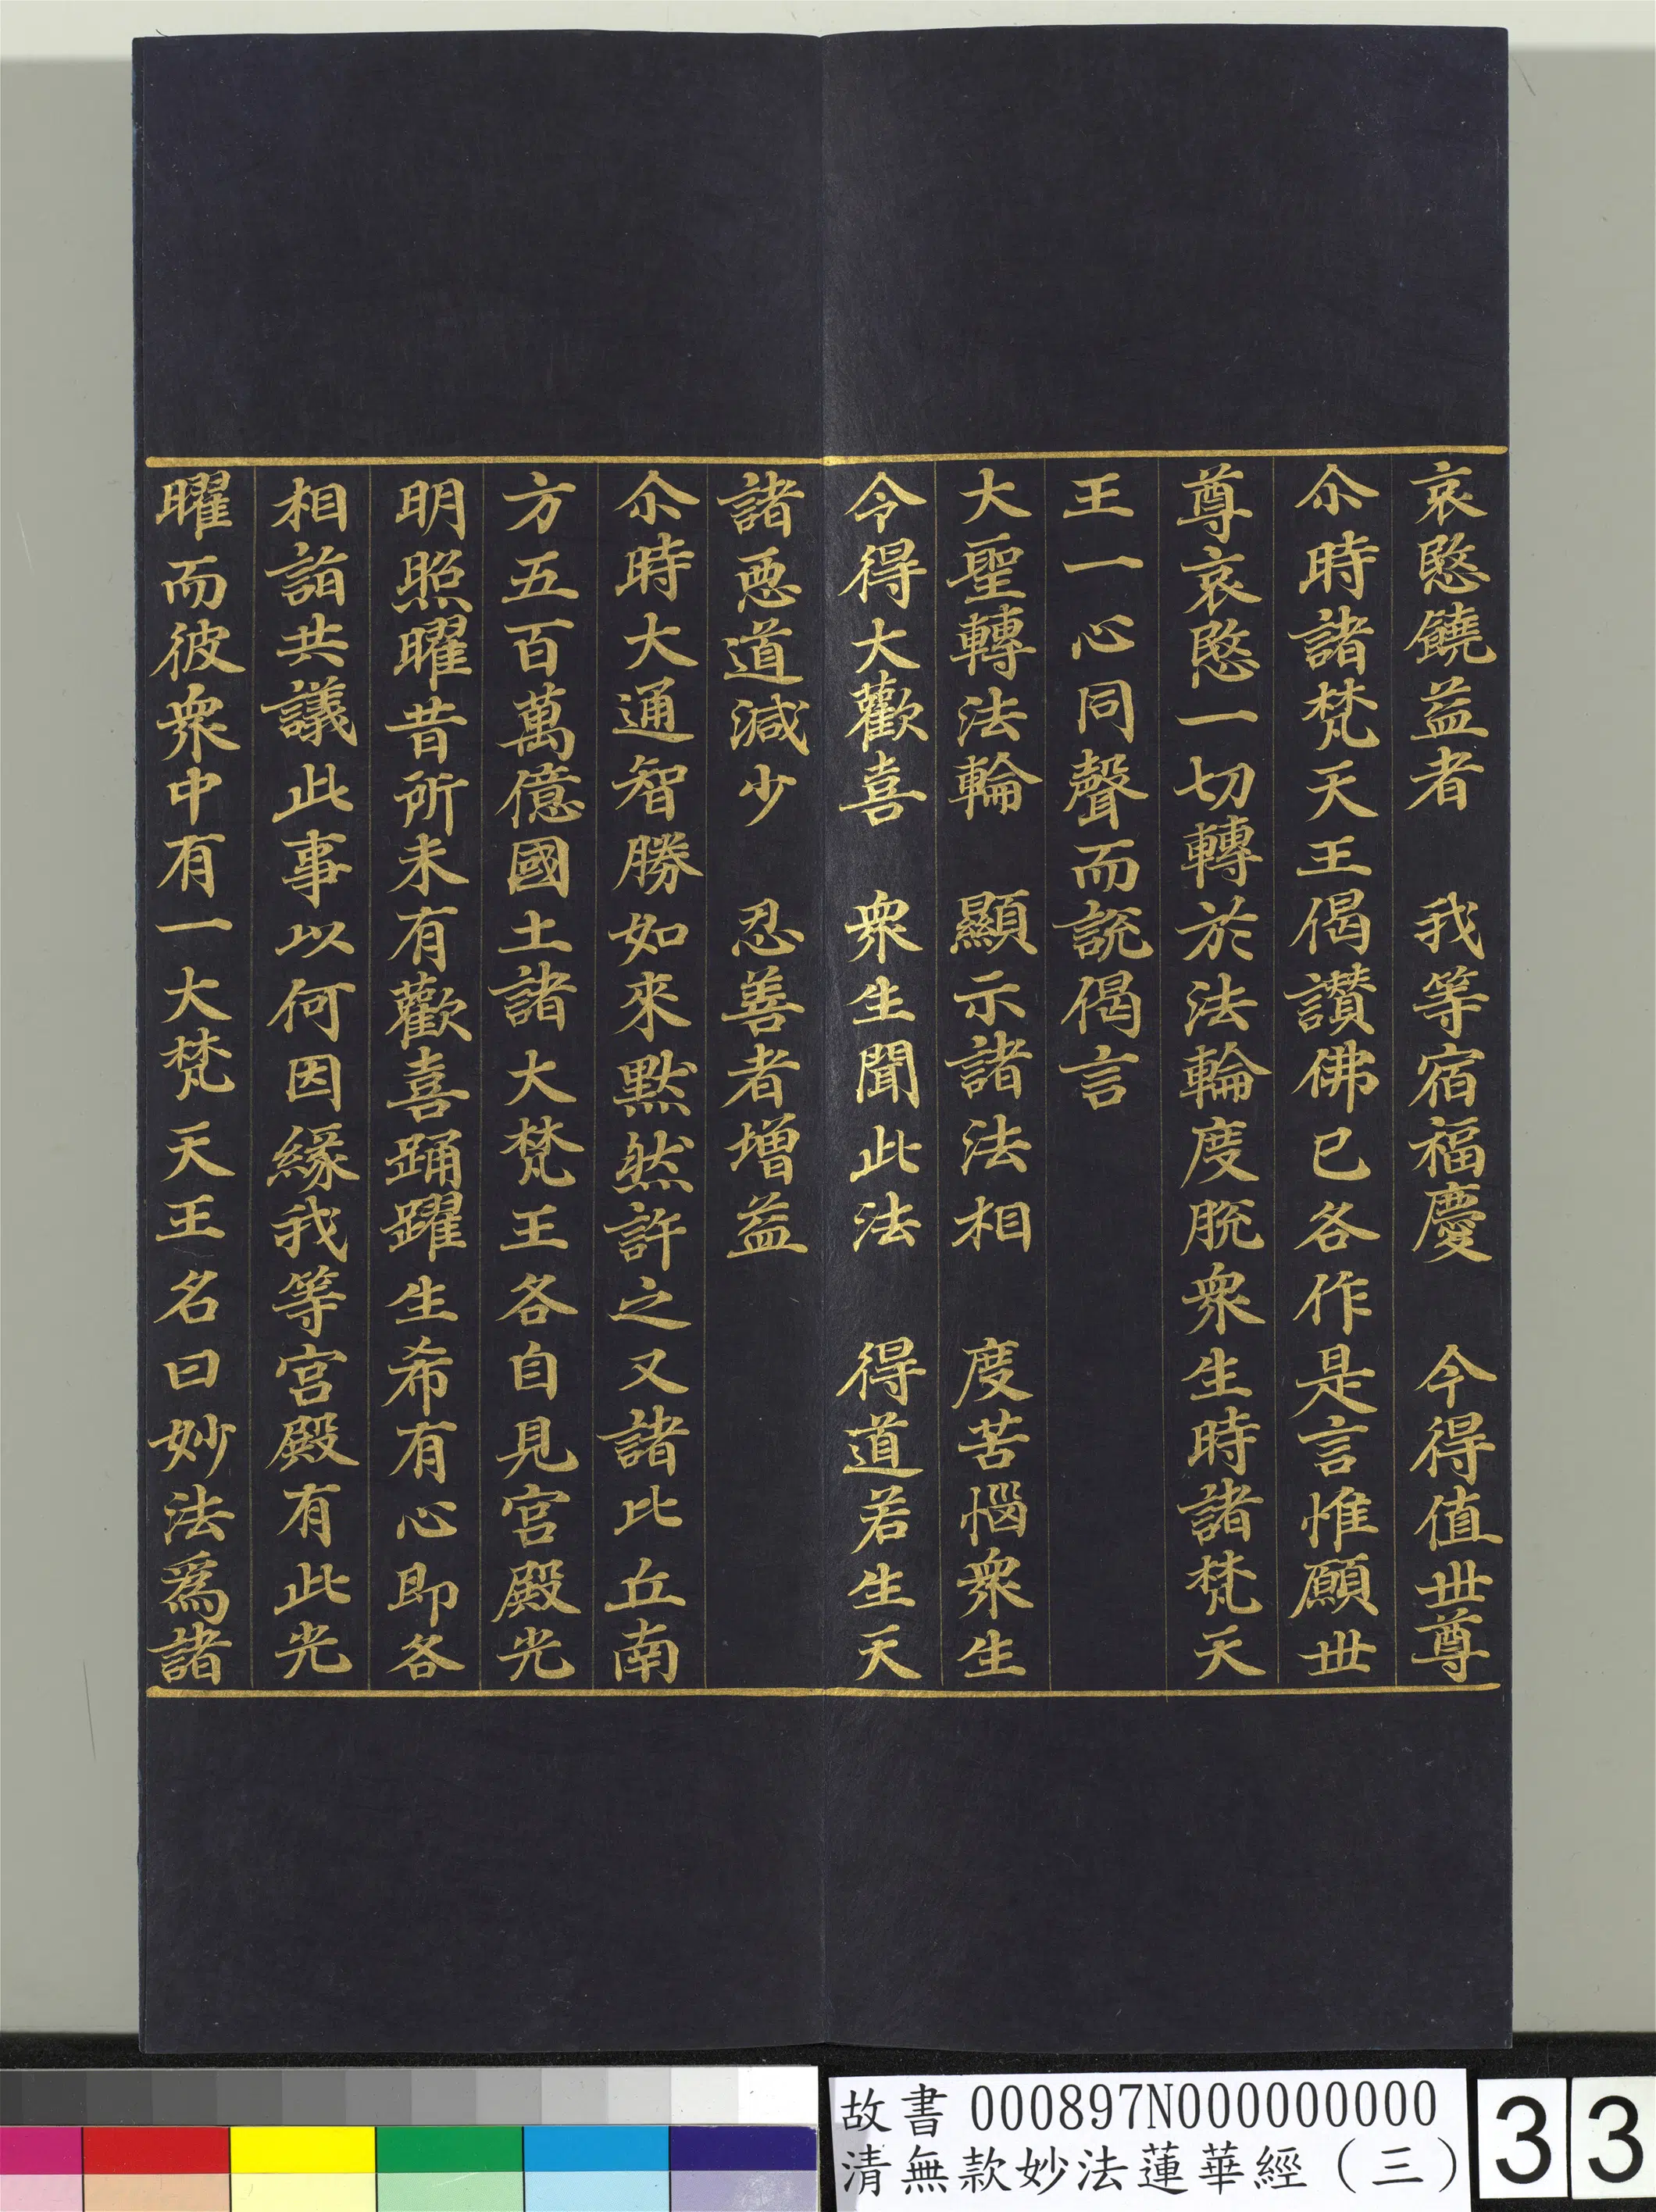 哀愍饒益者　我等宿福慶　今得值世尊
尒時諸梵天王偈讚佛已各作是言惟願世
尊哀愍一切轉於法輪度脫衆生時諸梵天
王一心同聲而說偈言
大聖轉法輪　顯示諸法相　度苦惱衆生
令得大歡喜　衆生聞此法　得道若生天
諸惡道減少　忍善者增益
尒時大通智勝如來默然許之又諸比丘南
方五百萬億國土諸大梵王各自見宮殿光
明照曜昔所未有歡喜踊躍生希有心即各
相詣共議此事以何因緣我等宮殿有此光
曜而彼衆中有一大梵天王名曰妙法爲諸
故書 000897N000000000
清無款妙法蓮華經（三）
33